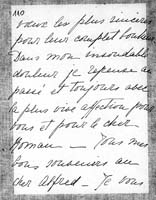 110
vœux les plus sincères
pour leur complet bonheur
Dans mon insondable
douleur je repense au
passé et toujours avec
la plus vive affection pour
vous et pour le cher
Roman — Tous mes
bons souvenirs au
cher Alfred — Je vous